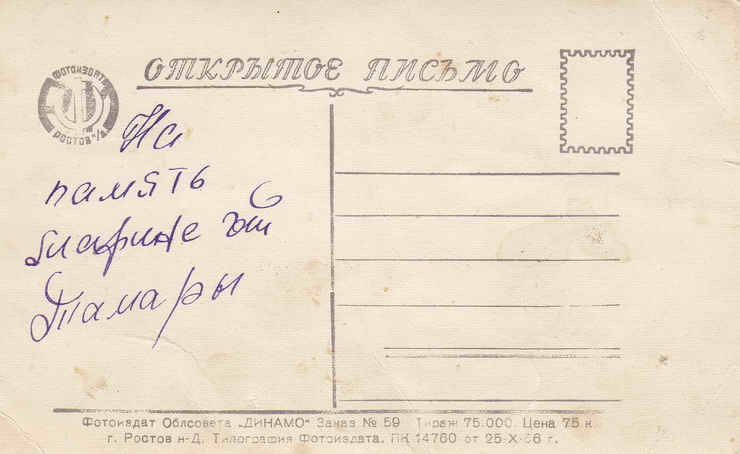 ОТКРЫТОЕ ПИСЬМО
ФОТОИЗДАТ
РОСТОВ н/Д
На
память
Марине от
Тамары
Фотоиздат Облсовета „ДИНАМО" Заказ № 59 Тираж 75.000. Цена 75 к.
г. Ростов н-Д. Типография Фотоиздата. ПК 14760 от 25-X-56 г.